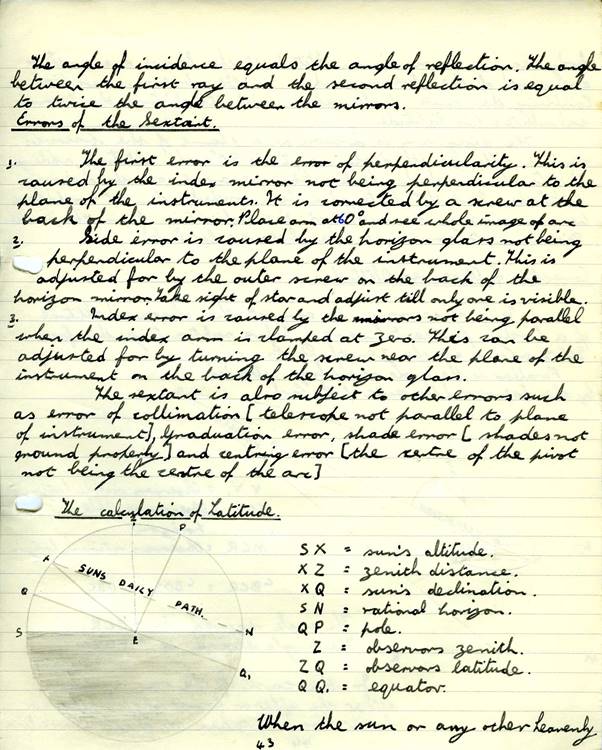 The angle of incidence equals the angle of reflection. The angle
between the first ray and the second reflection is equal
to twice the angle between the mirrors.
Errors of the Sextant.
1. The first error is the error of perpendicularity. This is
caused by the index mirror not being perpendicular to the
plane of the instruments. It is corrected by a screw at the
back of the mirror. Place arm at 60° and see whole image of arc
2. Side error is caused by the horizon glass not being
perpendicular to the plane of the instrument. This is
adjusted for by the outer screw on the back of the
horizon mirror. Take sight of star and adjust till only one is visible.
3. Index error is caused by the mirrors not being parallel
when the index arm is clamped at zero. This can be
adjusted for by turning the screw near the plane of the
instrument on the back of the horizon glass.
The sextant is also subject to other errors such
as error of collimation [telescope not parallel to plane
of instrument], graduation error, shade error [shades not
ground properly] and centring error [the centre of the pivot
not being the centre of the arc]
The calculation of Latitude.
P
X
SUNS DAILY PATH.
Q
S
E
N
Q1
SX = sun's altitude.
XZ = zenith distance.
XQ = sun's declination.
SN = rational horizon.
QP = pole.
Z = observors zenith.
ZQ = observors latitude.
QQ1 = equator.
When the sun or any other heavenly
43